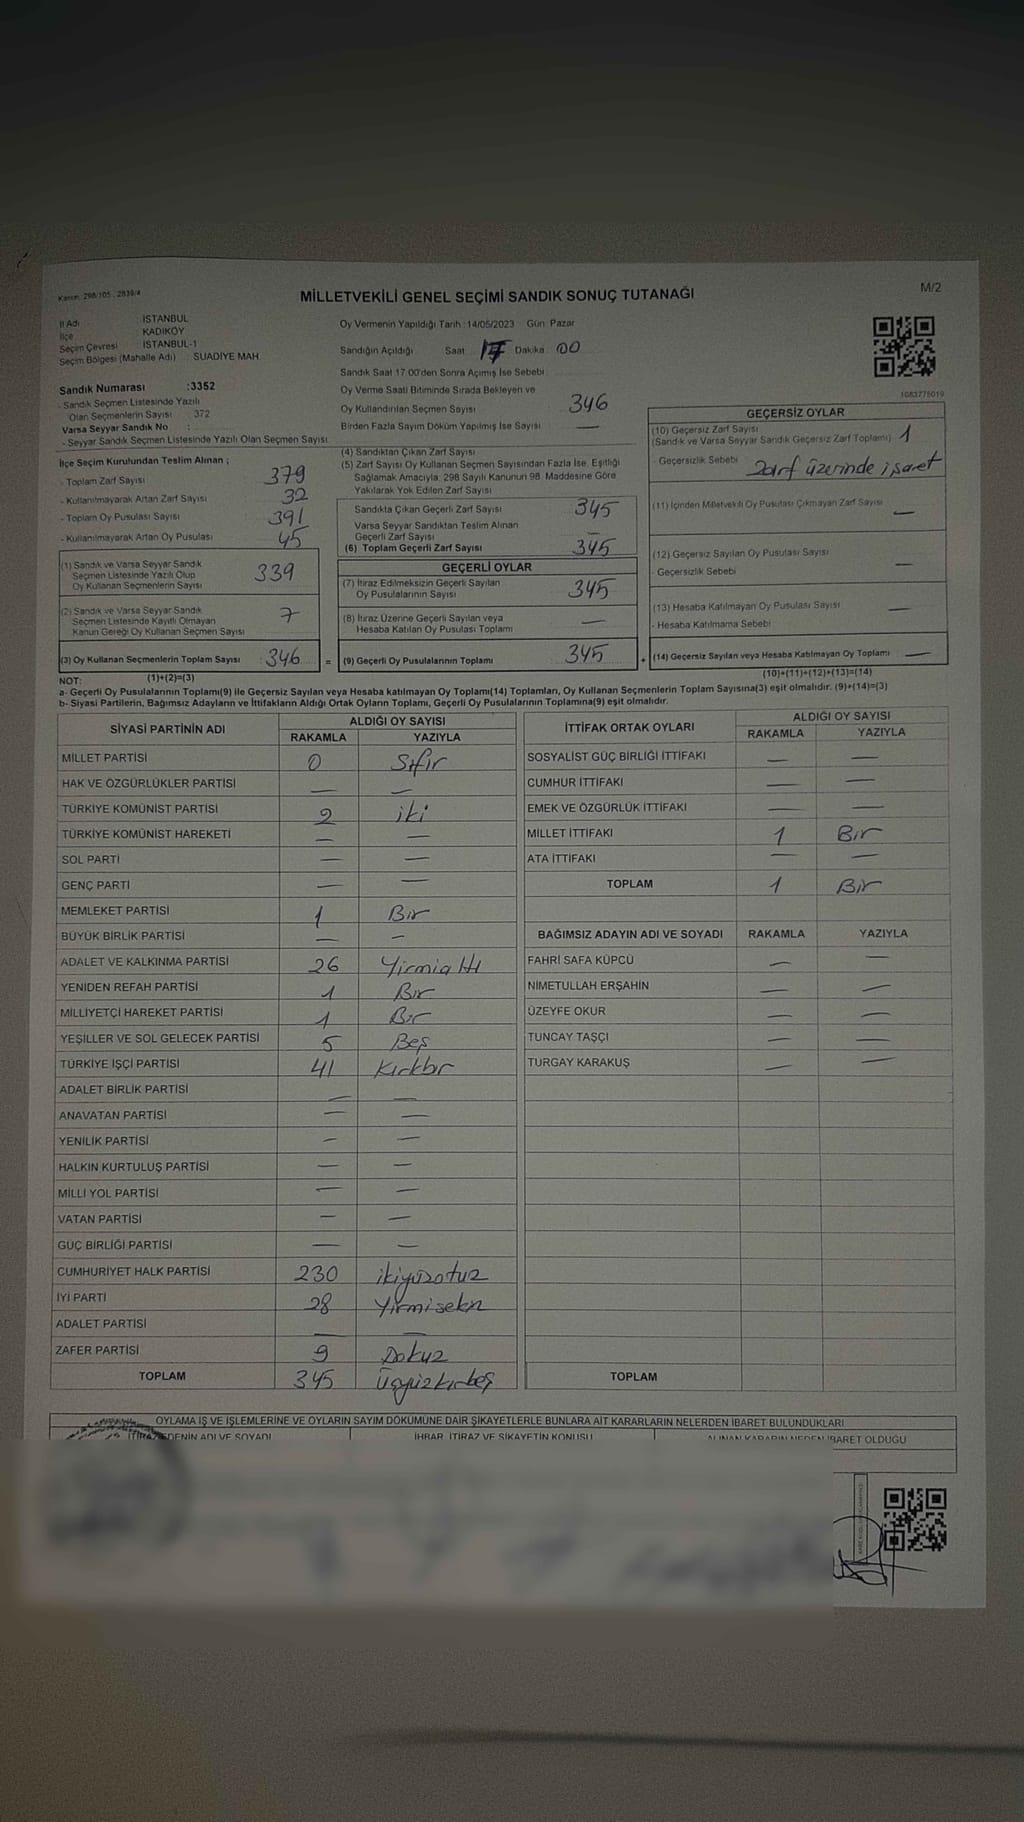 Kanun: 298/105 , 2839/4
MİLLETVEKİLİ GENEL SEÇİMİ SANDIK SONUÇ TUTANAĞI
M/2
İl Adı : İSTANBUL
İlçe : KADIKÖY
Seçim Çevresi : İSTANBUL-1
Seçim Bölgesi (Mahalle Adı) : SUADİYE MAH
Sandık Numarası :3352
- Sandık Seçmen Listesinde Yazılı
Olan Seçmenlerin Sayısı : 372
Varsa Seyyar Sandık No :
- Seyyar Sandık Seçmen Listesinde Yazılı Olan Seçmen Sayısı
İlçe Seçim Kurulundan Teslim Alınan ;
- Toplam Zarf Sayısı 379
- Kullanılmayarak Artan Zarf Sayısı 32
- Toplam Oy Pusulası Sayısı 391
- Kullanılmayarak Artan Oy Pusulası 45
(1) Sandık ve Varsa Seyyar Sandık
Seçmen Listesinde Yazılı Olup
Oy Kullanan Seçmenlerin Sayısı 339
(2) Sandık ve Varsa Seyyar Sandık
Seçmen Listesinde Kayıtlı Olmayan
Kanun Gereği Oy Kullanan Seçmen Sayısı 7
(3) Oy Kullanan Seçmenlerin Toplam Sayısı 346
Oy Vermenin Yapıldığı Tarih :14/05/2023 Gün: Pazar
Sandığın Açıldığı Saat 17 Dakika 00
Sandık Saat 17.00'den Sonra Açımış İse Sebebi
Oy Verme Saati Bitiminde Sırada Bekleyen ve
Oy Kullandırılan Seçmen Sayısı 346
Birden Fazla Sayım Döküm Yapılmış İse Sayısı —
(4) Sandıktan Çıkan Zarf Sayısı
(5) Zarf Sayısı Oy Kullanan Seçmen Sayısından Fazla İse, Eşitliği
Sağlamak Amacıyla, 298 Sayılı Kanunun 98. Maddesine Göre
Yakılarak Yok Edilen Zarf Sayısı
Sandıkta Çıkan Geçerli Zarf Sayısı 345
Varsa Seyyar Sandıktan Teslim Alınan
Geçerli Zarf Sayısı —
(6) Toplam Geçerli Zarf Sayısı 345
GEÇERLİ OYLAR
(7) İtiraz Edilmeksizin Geçerli Sayılan
Oy Pusulalarının Sayısı 345
(8) İtiraz Üzerine Geçerli Sayılan veya
Hesaba Katılan Oy Pusulası Toplamı —
= (9) Geçerli Oy Pusulalarının Toplamı 345
1083775019
GEÇERSİZ OYLAR
(10) Geçersiz Zarf Sayısı
(Sandık ve Varsa Seyyar Sandık Geçersiz Zarf Toplamı) 1
- Geçersizlik Sebebi Zarf üzerinde işaret
(11) İçinden Milletvekili Oy Pusulası Çıkmayan Zarf Sayısı —
(12) Geçersiz Sayılan Oy Pusulası Sayısı
- Geçersizlik Sebebi —
(13) Hesaba Katılmayan Oy Pusulası Sayısı —
- Hesaba Katılmama Sebebi
+ (14) Geçersiz Sayılan veya Hesaba Katılmayan Oy Toplamı —
NOT: (1)+(2)=(3) (10)+(11)+(12)+(13)=(14)
a- Geçerli Oy Pusulalarının Toplamı(9) ile Geçersiz Sayılan veya Hesaba katılmayan Oy Toplamı(14) Toplamları, Oy Kullanan Seçmenlerin Toplam Sayısına(3) eşit olmalıdır. (9)+(14)=(3)
b- Siyasi Partilerin, Bağımsız Adayların ve İttifakların Aldığı Ortak Oyların Toplamı, Geçerli Oy Pusulalarının Toplamına(9) eşit olmalıdır.
SİYASİ PARTİNİN ADI ALDIĞI OY SAYISI
RAKAMLA YAZIYLA
MİLLET PARTİSİ 0 Sıfır
HAK VE ÖZGÜRLÜKLER PARTİSİ — —
TÜRKİYE KOMÜNİST PARTİSİ 2 iki
TÜRKİYE KOMÜNİST HAREKETİ — —
SOL PARTİ — —
GENÇ PARTİ — —
MEMLEKET PARTİSİ 1 Bir
BÜYÜK BİRLİK PARTİSİ — —
ADALET VE KALKINMA PARTİSİ 26 Yirmialtı
YENİDEN REFAH PARTİSİ 1 Bir
MİLLİYETÇİ HAREKET PARTİSİ 1 Bir
YEŞİLLER VE SOL GELECEK PARTİSİ 5 Beş
TÜRKİYE İŞÇİ PARTİSİ 41 Kırkbr
ADALET BİRLİK PARTİSİ — —
ANAVATAN PARTİSİ — —
YENİLİK PARTİSİ — —
HALKIN KURTULUŞ PARTİSİ — —
MİLLİ YOL PARTİSİ — —
VATAN PARTİSİ — —
GÜÇ BİRLİĞİ PARTİSİ — —
CUMHURİYET HALK PARTİSİ 230 ikiyüzotuz
İYİ PARTİ 28 Yirmisekn
ADALET PARTİSİ — —
ZAFER PARTİSİ 9 Dokuz
TOPLAM 345 Üçyüzkırkbeş
İTTİFAK ORTAK OYLARI ALDIĞI OY SAYISI
RAKAMLA YAZIYLA
SOSYALİST GÜÇ BİRLİĞİ İTTİFAKI — —
CUMHUR İTTİFAKI — —
EMEK VE ÖZGÜRLÜK İTTİFAKI — —
MİLLET İTTİFAKI 1 Bir
ATA İTTİFAKI — —
TOPLAM 1 Bir
BAĞIMSIZ ADAYIN ADI VE SOYADI RAKAMLA YAZIYLA
FAHRİ SAFA KÜPCÜ — —
NİMETULLAH ERŞAHİN — —
ÜZEYFE OKUR — —
TUNCAY TAŞÇI — —
TURGAY KARAKUŞ — —
TOPLAM
OYLAMA İŞ VE İŞLEMLERİNE VE OYLARIN SAYIM DÖKÜMÜNE DAİR ŞİKAYETLERLE BUNLARA AİT KARARLARIN NELERDEN İBARET BULUNDUKLARI
İTİRAZ EDENİN ADI VE SOYADI İHBAR, İTİRAZ VE ŞİKAYETİN KONUSU ALINAN KARARIN NEDEN İBARET OLDUĞU